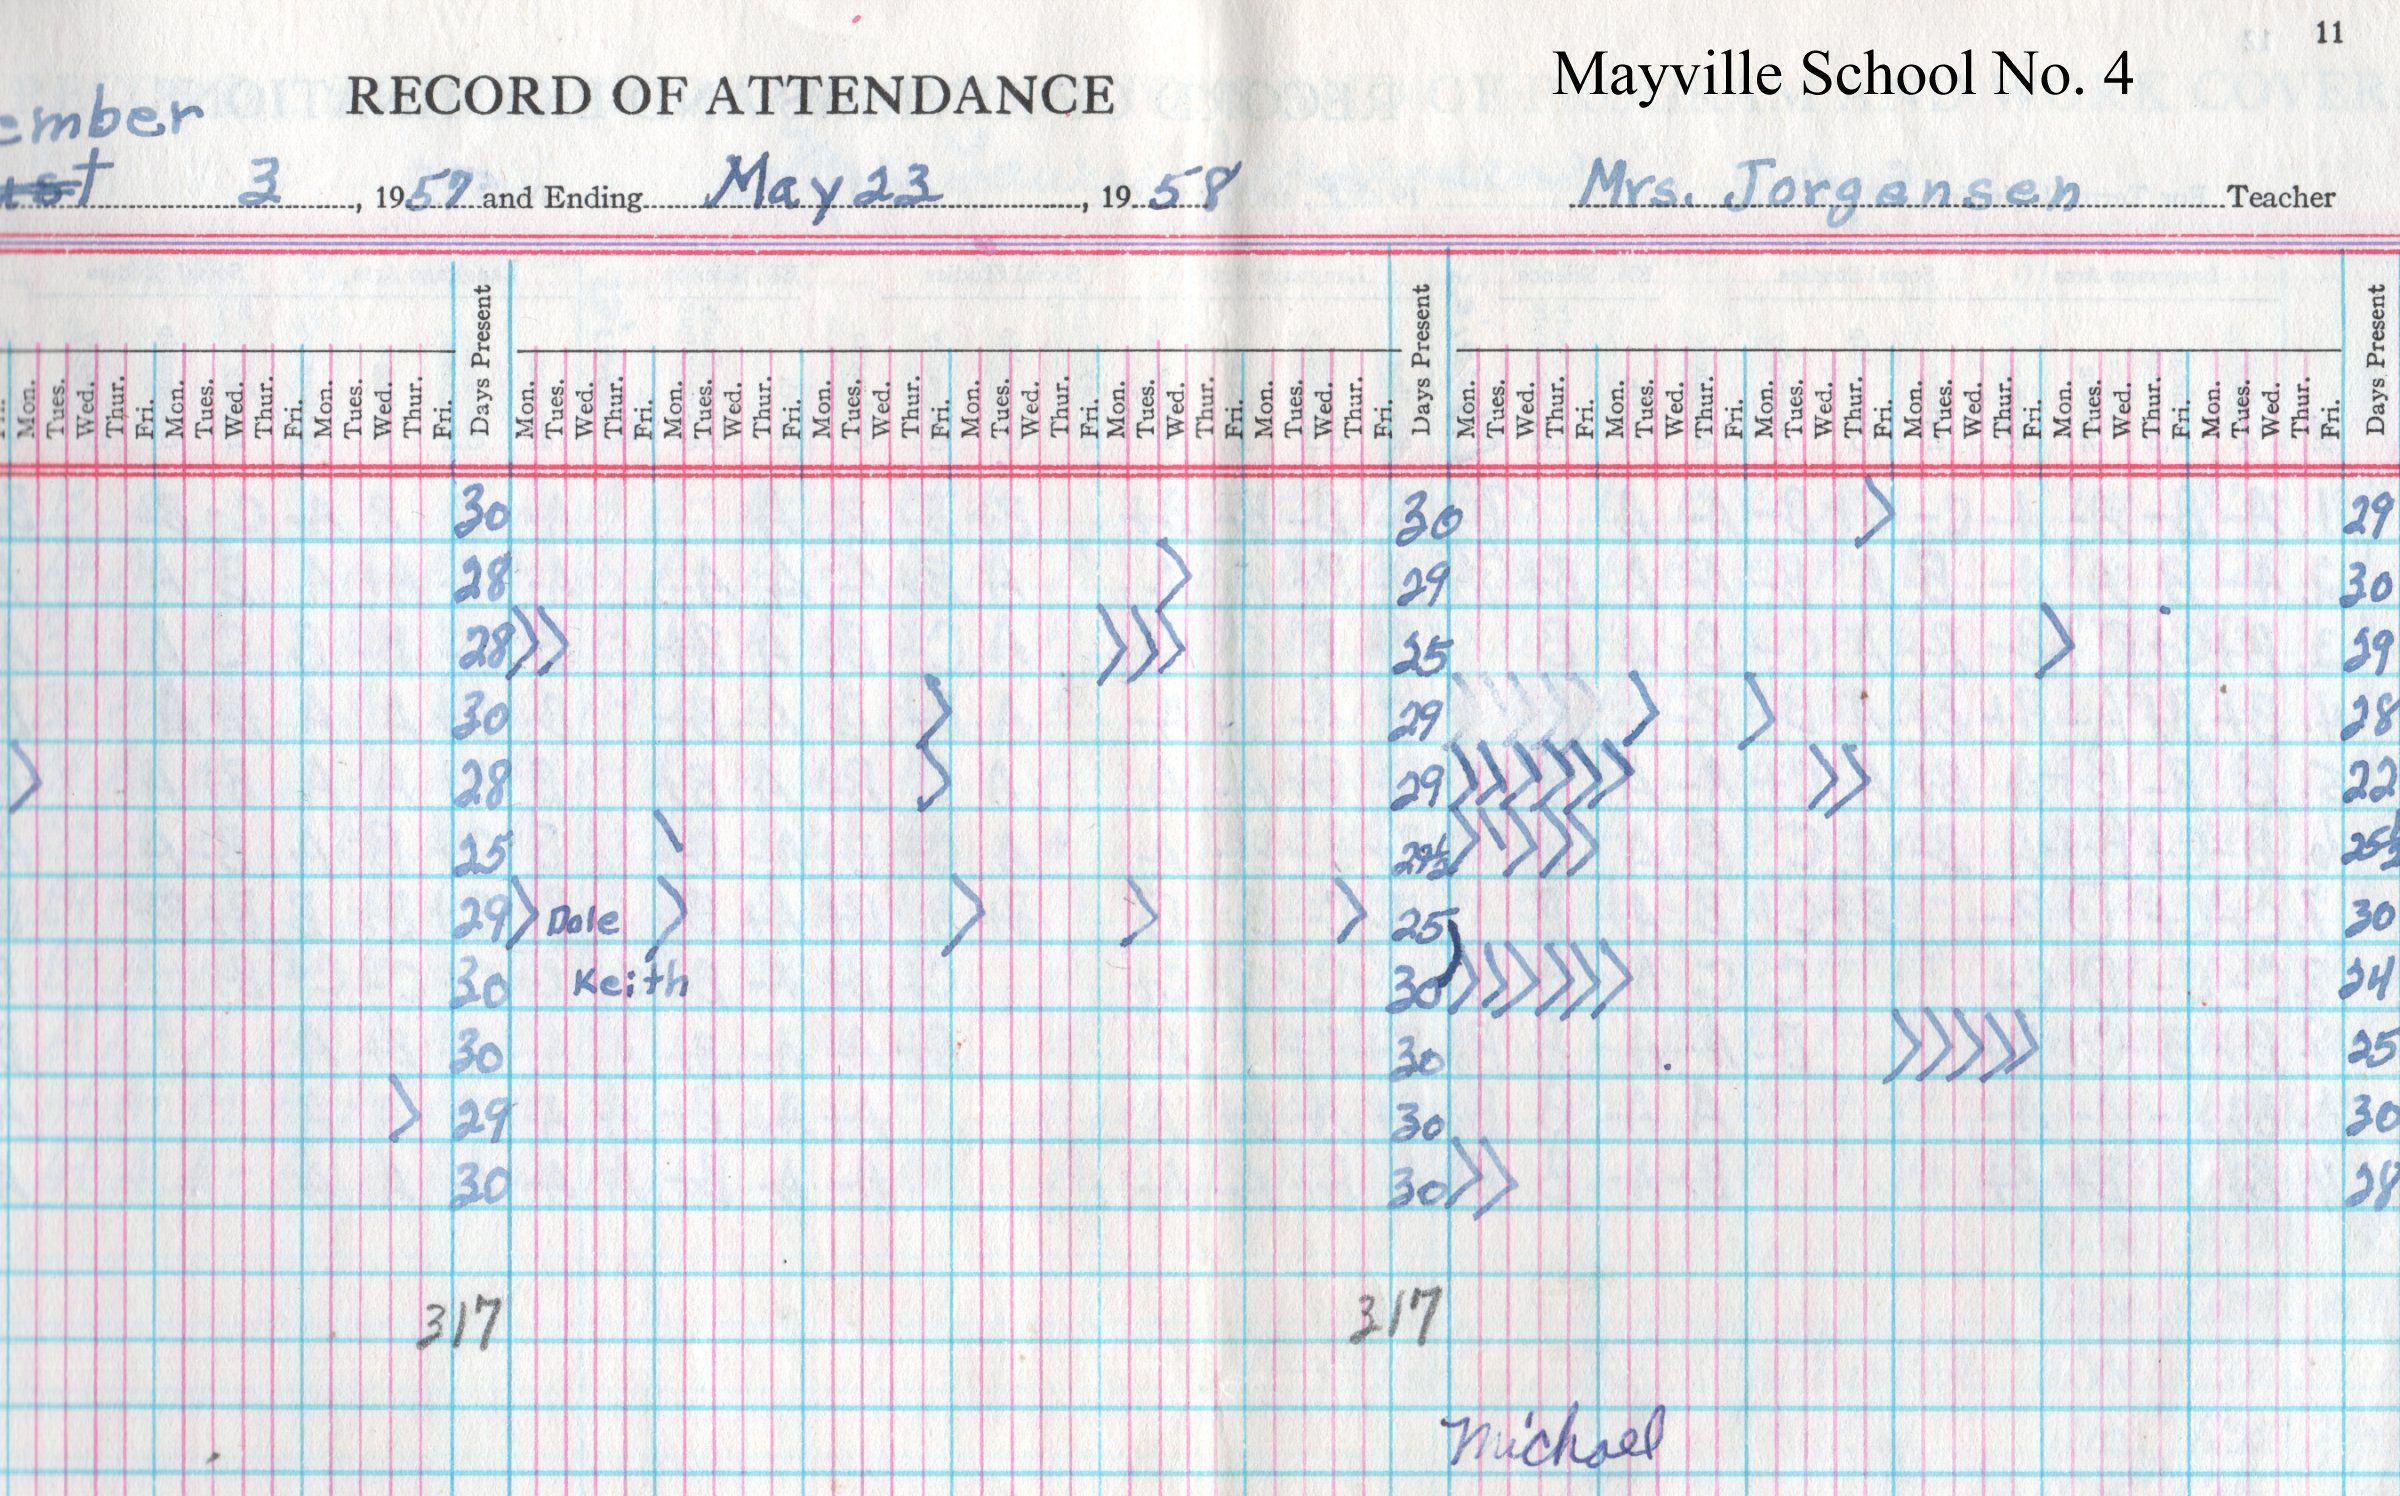 11
Mayville School No. 4
RECORD OF ATTENDANCE
ember
3, 1957 and Ending May 23, 1958 Mrs. Jorgensen Teacher
Mon. Tues. Wed. Thur. Fri. Mon. Tues. Wed. Thur. Fri. Mon. Tues. Wed. Thur. Fri. Days Present Mon. Tues. Wed. Thur. Fri. Mon. Tues. Wed. Thur. Fri. Mon. Tues. Wed. Thur. Fri. Mon. Tues. Wed. Thur. Fri. Mon. Tues. Wed. Thur. Fri. Mon. Tues. Wed. Thur. Fri. Days Present Mon. Tues. Wed. Thur. Fri. Mon. Tues. Wed. Thur. Fri. Mon. Tues. Wed. Thur. Fri. Mon. Tues. Wed. Thur. Fri. Mon. Tues. Wed. Thur. Fri. Mon. Tues. Wed. Thur. Fri. Days Present
30 30 29
28 29 30
28 25 29
30 29 28
28 29 22
25 29½ 25½
29 Dale 25 30
30 Keith 30 24
30 30 25
29 30 30
30 30 28
317 317
Michael